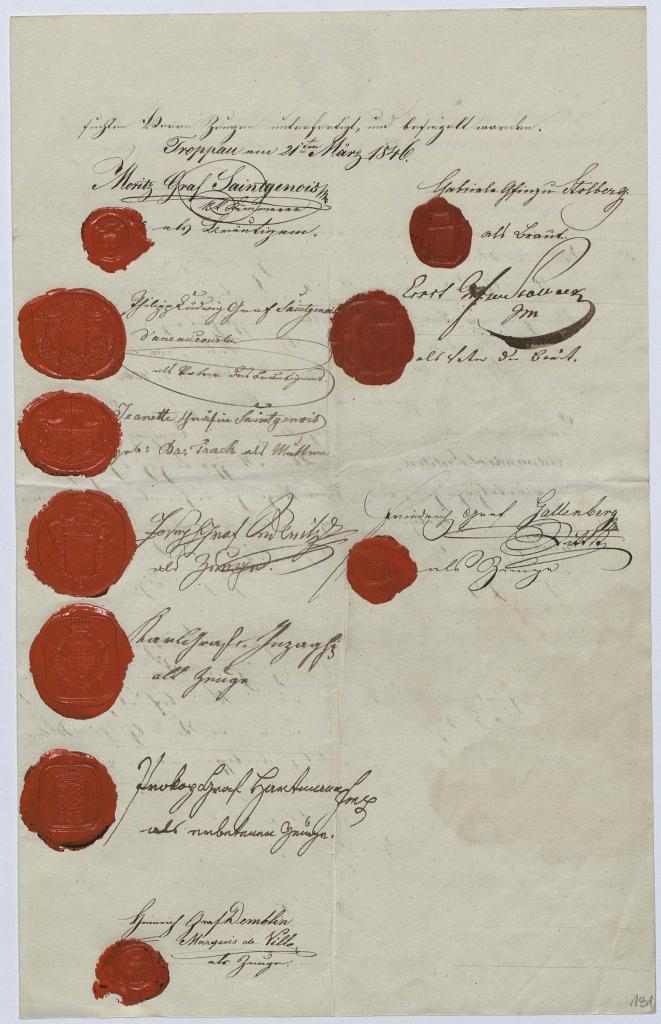 suchten Herrn Zeugen unterfertigt, und besiegelt worden.
Troppau am 21ten März 1846.
Moritz Graf Saintgenois
k.k. Kämmerer
als Bräutigam.
Gabriele Gräfin zu Stolberg
als Braut.
Philipp Ludwig Graf Saintgenois
d'aneaucourt
als Vater des Bräutigams.
Ernst Graf zu Stolberg
als Vater der Braut.
Jeanette Gräfin Saintgenois
geb: Trach als Mutter
Joseph Graf
als Zeuge.
Friedrich Graf Gallenberg
als Zeuge
Karl Graf v. Inzaghi
als Zeuge
Prokop Graf Hartmann
als erbetener Zeuge.
Heinrich Graf Demblin
Marquis de Ville
als Zeuge.
131